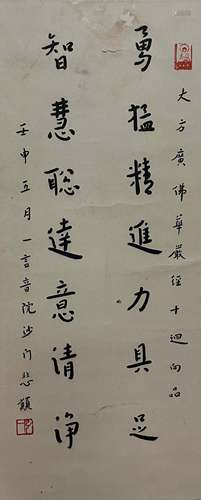 大方廣佛華嚴經十迴向品
勇猛精進力具足
智慧聡達意清淨
壬申五月一言音院沙门悲願